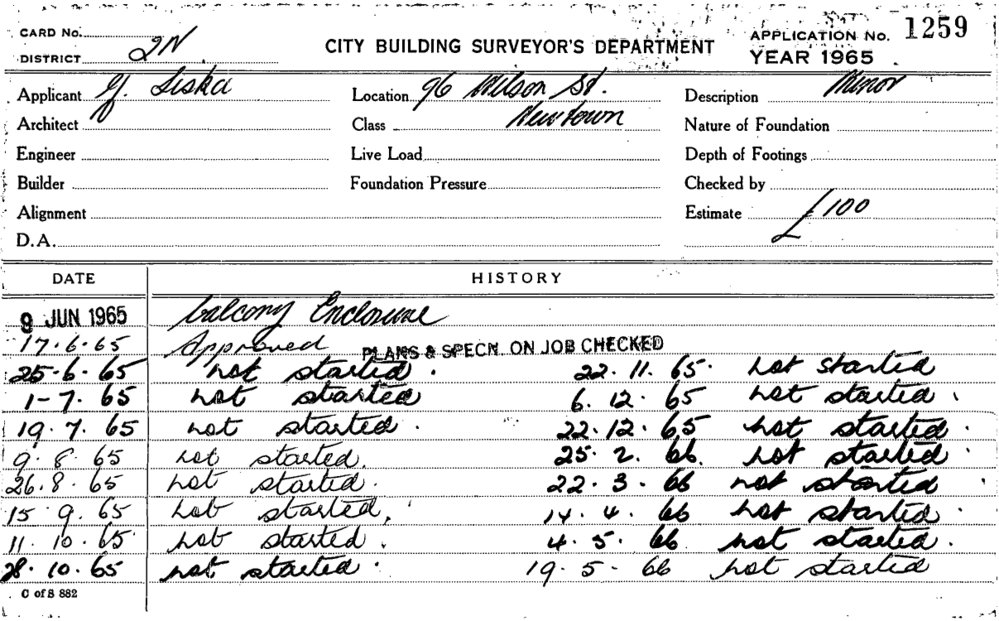 CARD No.
DISTRICT 2N
CITY BUILDING SURVEYOR'S DEPARTMENT
APPLICATION No. 1259
YEAR 1965
Applicant Y. Siska
Location 96 Wilson St.
Description Minor
Architect
Class Newtown
Nature of Foundation
Engineer
Live Load
Depth of Footings
Builder
Foundation Pressure
Checked by
Alignment
Estimate £100
D.A.
DATE HISTORY
9 JUN 1965 balcony Enclosure
17.6.65 Approved PLANS & SPECN. ON JOB CHECKED
25.6.65 not started. 22.11.65. not started
1-7.65 not started 6.12.65 not started.
19.7.65 not started. 22.12.65 not started.
9.8.65 not started. 25.2.66. not started.
26.8.65 not started. 22.3.66 not started.
15.9.65 not started. 14.4.66 not started.
11.10.65 not started. 4.5.66 not started.
28.10.65 not started. 19.5.66 not started
C of S 882